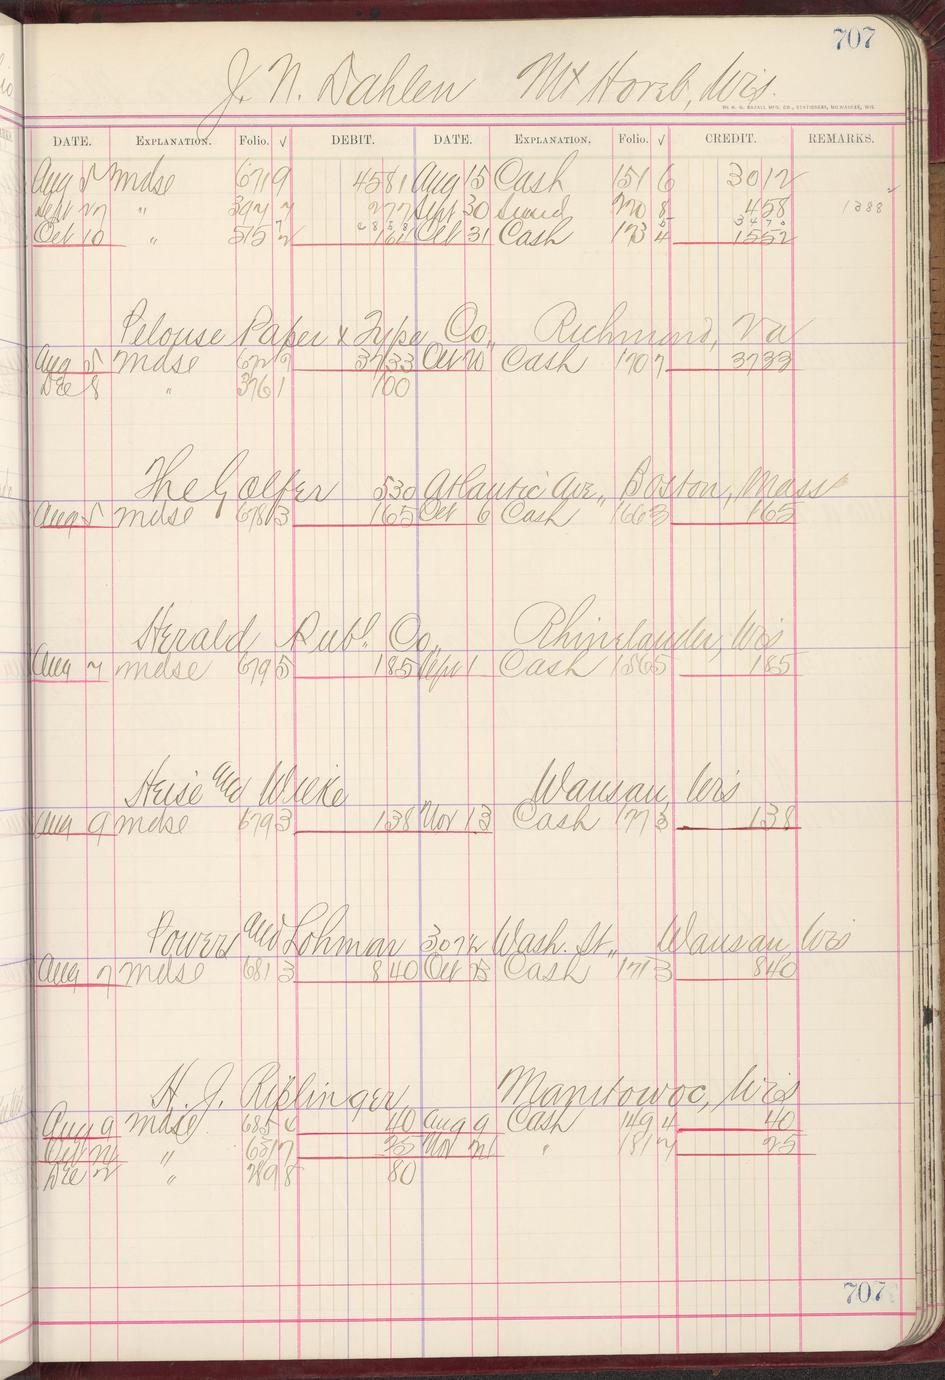 707
J. N. Dahlen Mt Horeb, Wis.
DATE. EXPLANATION. Folio. √ DEBIT. DATE. EXPLANATION. Folio. √ CREDIT. REMARKS.
Aug 5 Mdse 671 9 4581 Aug 15 Cash 151 6 3012
Sept 27 " 394 7 277 Sept 30 Sund 220 8 458 1388
Oct 10 " 515 2 161 Oct 31 Cash 173 4 1552
Pelouse Paper & Type Co., Richmond, Va
Aug 5 Mdse 672 9 3733 Oct 20 Cash 170 7 3733
Dec 8 " 376 1 100
The Golfer 530 Atlantic Ave., Boston, Mass
Aug 5 Mdse 678 3 165 Oct 6 Cash 166 3 165
Herald Publ. Co., Rhinelander, Wis
Aug 7 Mdse 679 5 185 Sept 1 Cash 156 5 185
Heise and Wilke Wausau, Wis
Aug 9 Mdse 679 3 138 Nov 13 Cash 177 3 138
Power and Lohmar 307½ Wash. St., Wausau, Wis
Aug 7 Mdse 681 3 840 Oct 23 Cash 171 3 840
H. J. Riplinger Manitowoc, Wis
Aug 9 Mdse 685 6 40 Aug 9 Cash 149 4 40
" 651 7 25 Nov 21 " 181 7 25
Dec 2 " 289 8 80
707